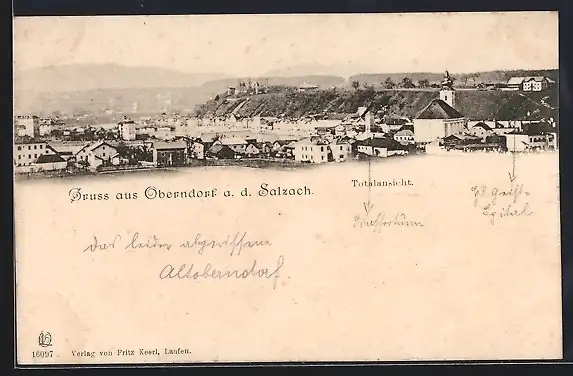 Gruss aus Oberndorf a. d. Salzach.
Totalansicht.
Hl Geist-
Spital
Wasserturm
das leider abgerissene
Altoberndorf
16097 Verlag von Fritz Keerl, Laufen.